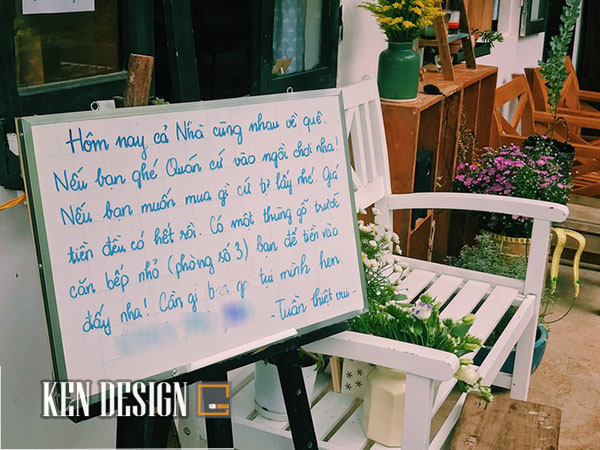 Hôm nay cả Nhà cùng nhau về quê.
Nếu bạn ghé Quán cứ vào ngồi chơi nha!
Nếu bạn muốn mua gì cứ tự lấy nhé. Giá
tiền đều có hết rồi. Có một thùng gỗ trước
căn bếp nhỏ (phòng số 3) bạn để tiền vào
đấy nha! Cần gì bạn gọi tụi mình hen.
- Tuần thiệt vui -
KEN DESIGN